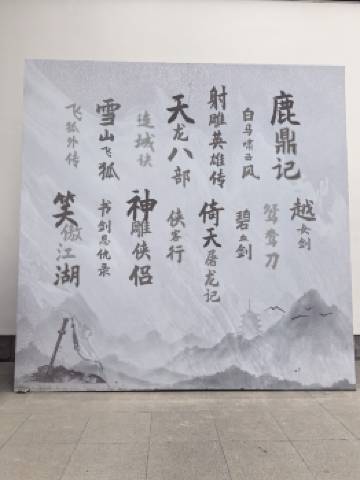 飞狐外传
雪山飞狐
连城诀
天龙八部
射雕英雄传
白马啸西风
鹿鼎记
笑傲江湖
书剑恩仇录
神雕侠侣
侠客行
倚天屠龙记
碧血剑
鸳鸯刀
越女剑